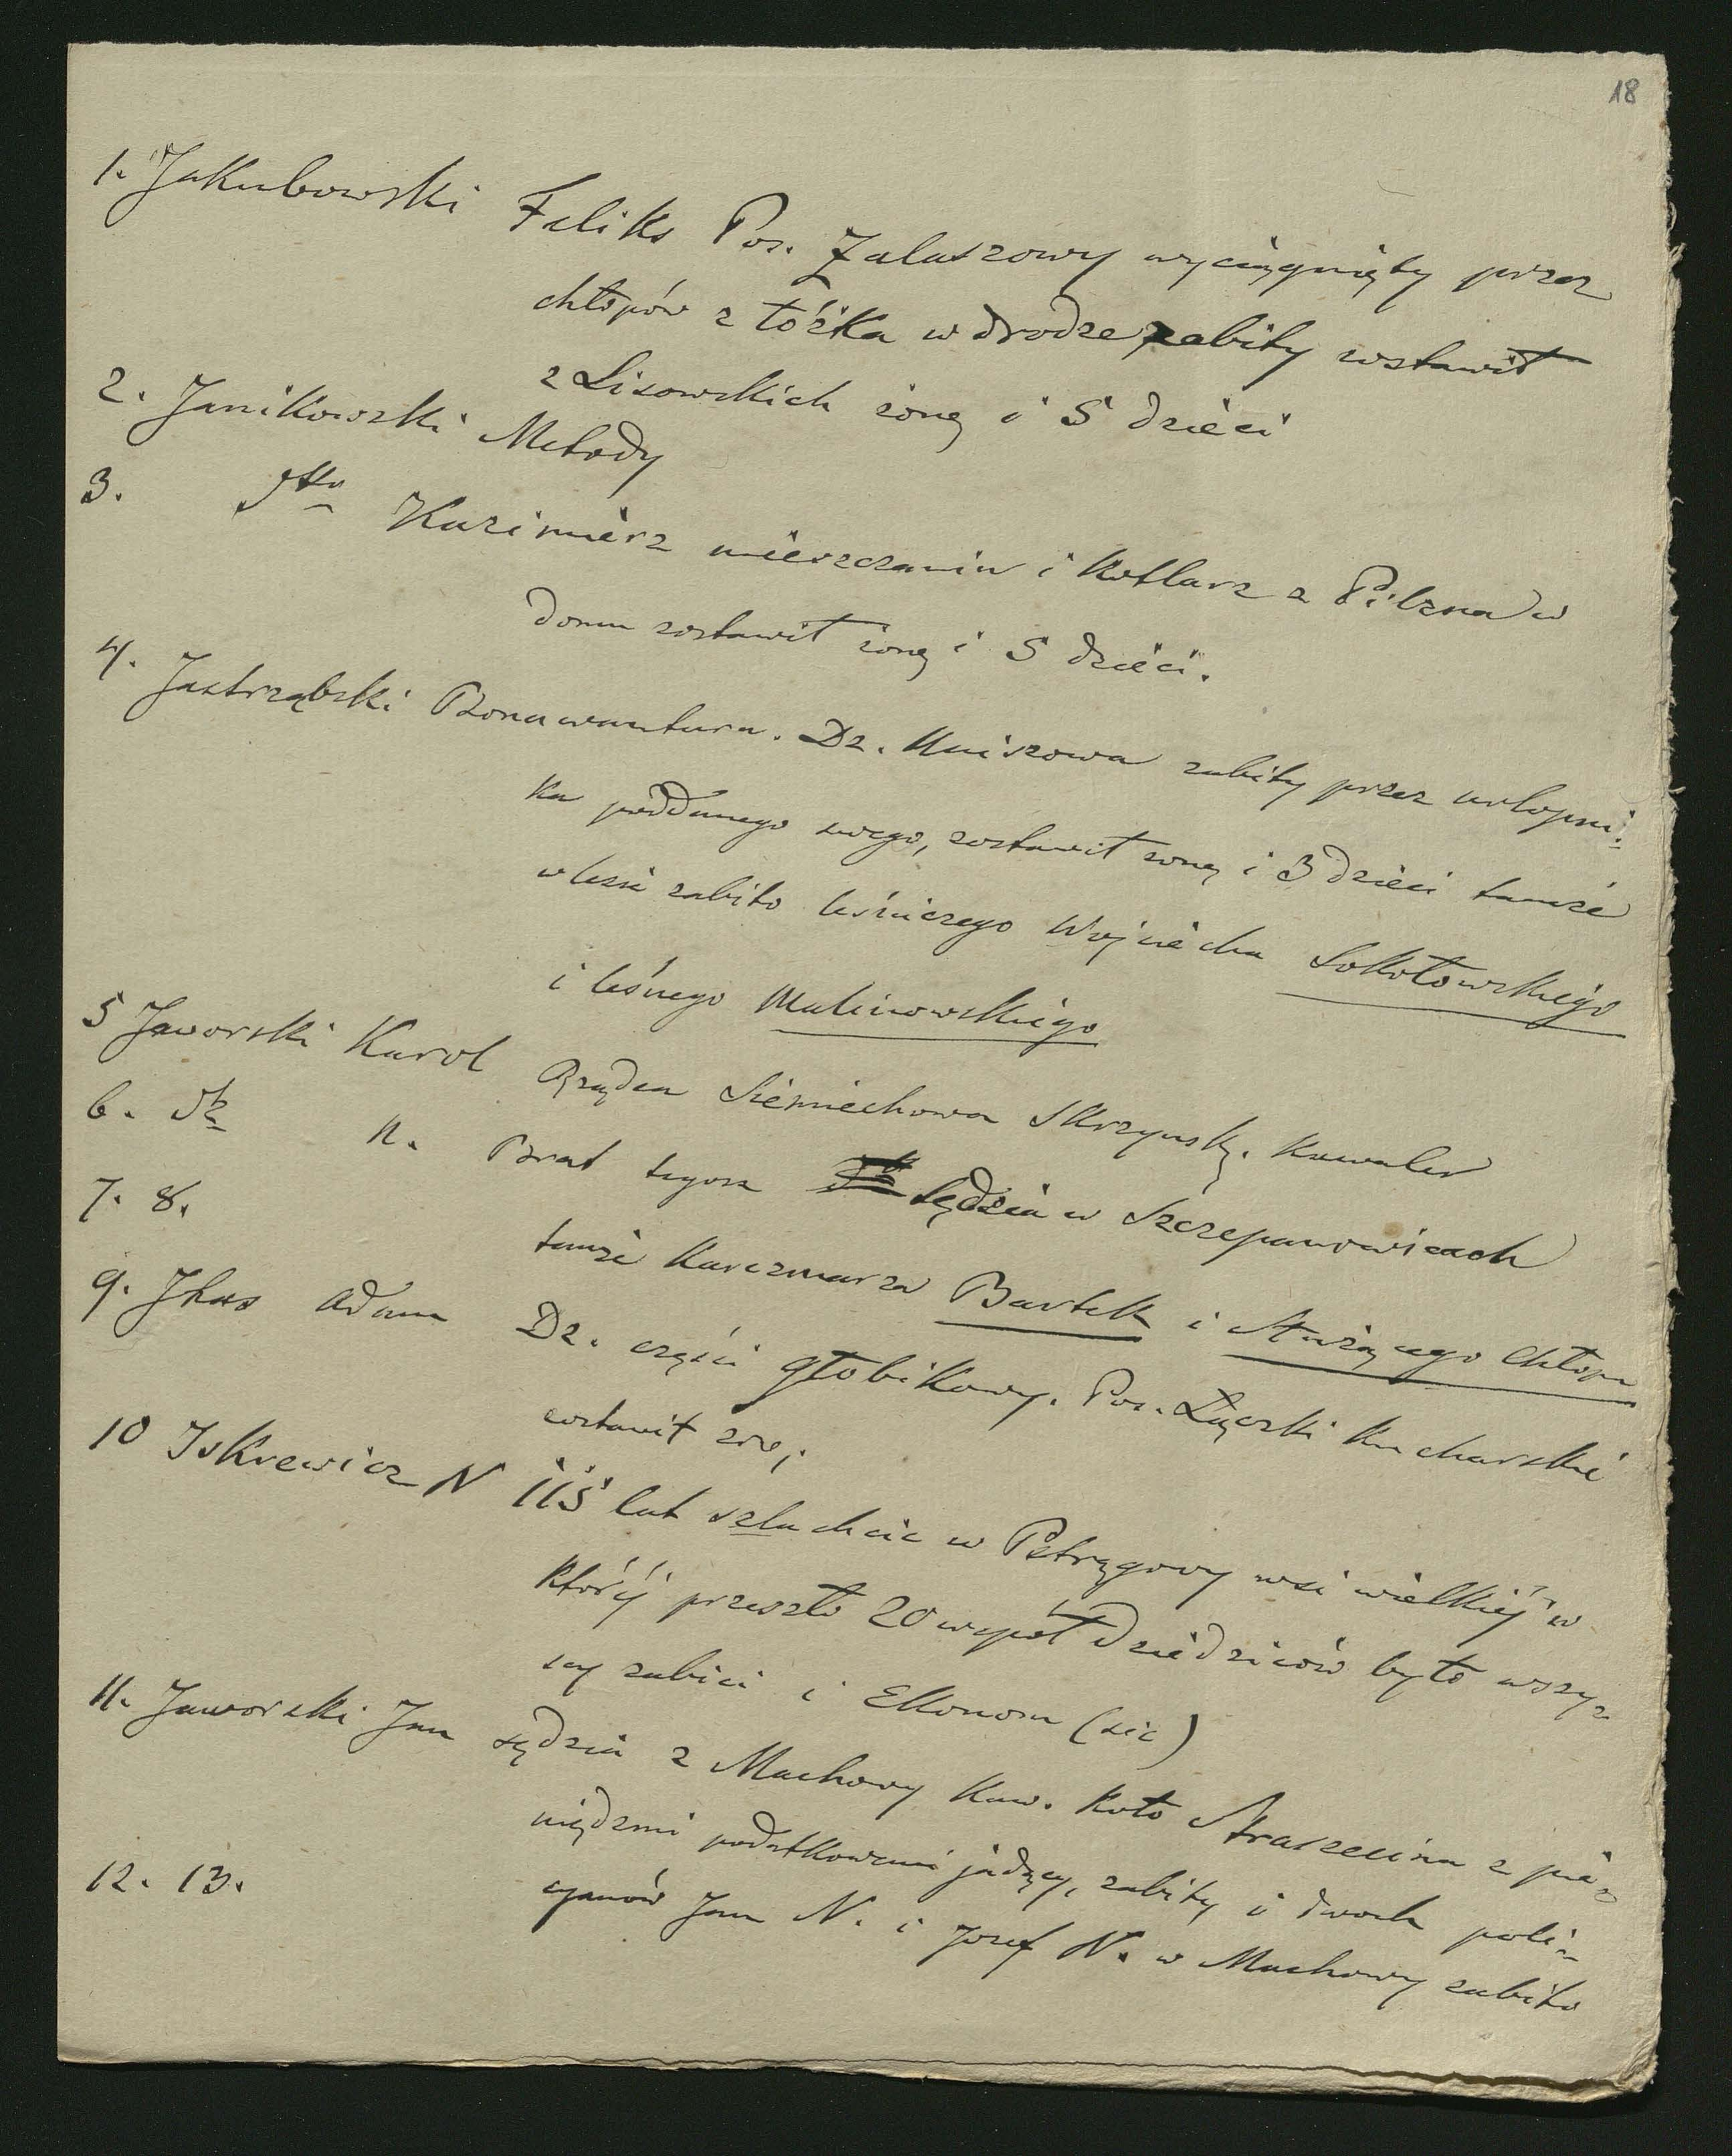 18
1. Jakubowski Feliks Pos. Zalaszowy wyciągnięty przez
chłopów z łóżka w drodze zabity zostawił
z Lisowskich żonę i 5 dzieci
2. Janikowski Metody
3. dtto Kazimierz mieszczanin i Kotlarz z Pilzna w
domu zostawił żonę i 5 dzieci.
4. Jastrząbski Bonawantura. Dz. Uniszowa zabity przez urlopni-
ka poddanego swego, zostawił żonę i 3 dzieci tamże
w lesie zabito leśniczego Wojciecha Sokołowskiego
i leśnego Malinowskiego
5 Jaworski Karol Rządca Siemiechowa Skrzyńsk. Kawaler
6. dto N. Brat tegoż sędzia w Szczepanowicach
7. 8. tamże Karczmarza Bartek i służącego chłopa
9. Jhas Adam Dz. części Głobikowy. Pos. Łączki Kucharskie
zostawił
10 Iskrewicz N 115 lat szlachcic w Pstrągowy wsi wielkiéj w
któréj przeszło 20 współ dziedziców było wszy-
scy zabici i Ekonom (sic)
11. Jaworski Jan sędzia z Machowy Kaw. koło Straszecina z pie-
niędzmi podatkowemi jadący, zabity i dwoch poli-
12. 13. cyanów Jan N. i Jozef N. w Machowy zabito